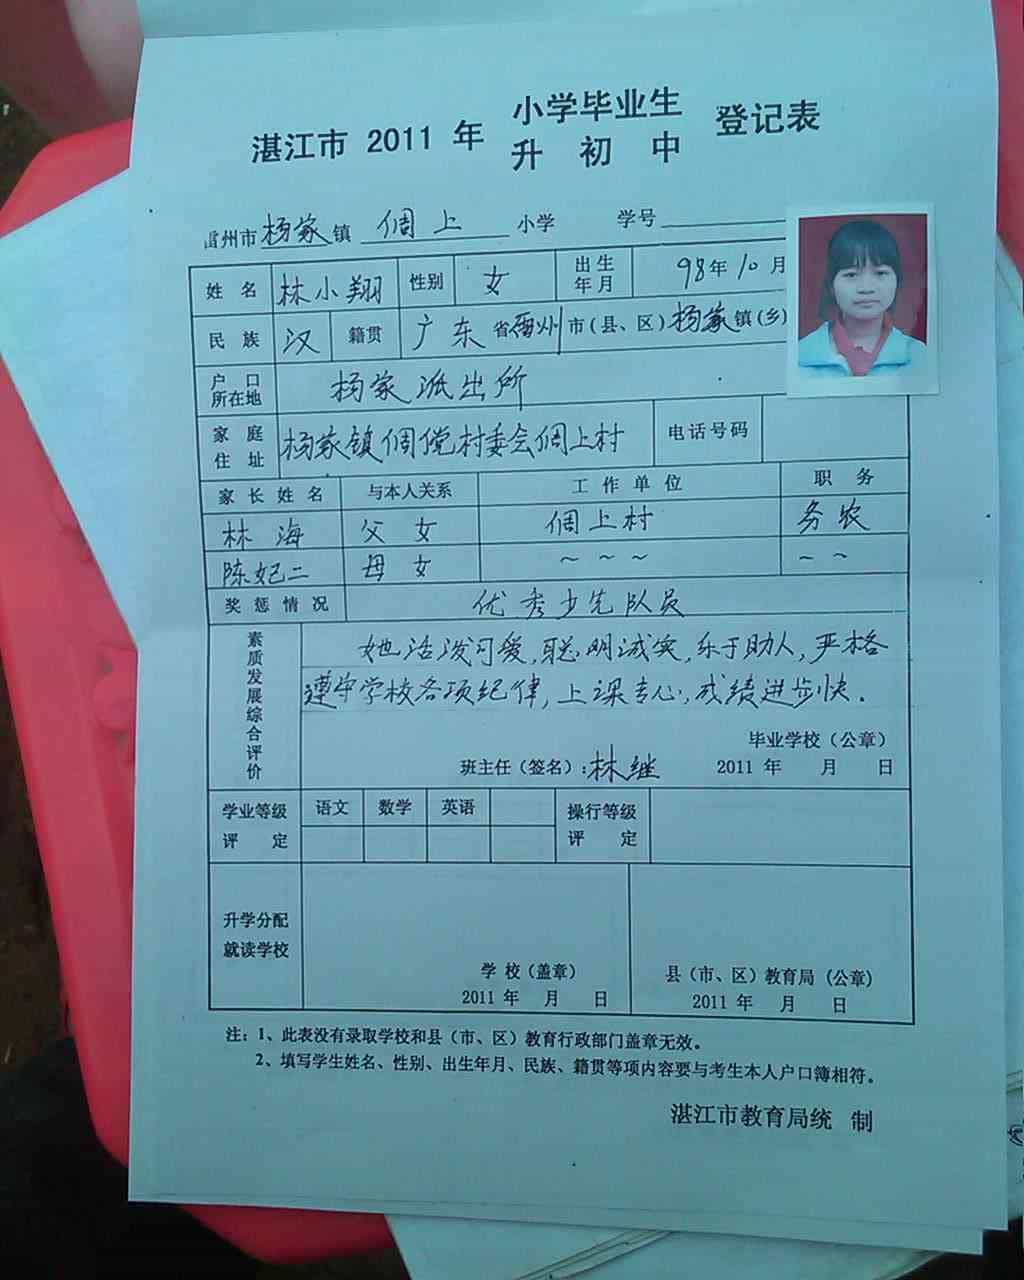 湛江市 2011 年 小学毕业生 登记表
升 初 中
雷州市杨家镇 倜上 小学 学号
姓 名 林小翔 性别 女 出生年月 98年10月
民 族 汉 籍贯 广东省雷州市(县、区)杨家镇(乡)
户 口 所在地 杨家派出所
家 庭 住 址 杨家镇倜傥村委会倜上村 电话号码
家 长 姓 名 与本人关系 工 作 单 位 职 务
林海 父女 倜上村 务农
陈妃二 母女 ～ ～ ～ ～ ～
奖 惩 情 况 优秀少先队员
素质发展综合评价
她活泼可爱,聪明诚实,乐于助人,严格
遵守学校各项纪律,上课专心,成绩进步快.
毕业学校（公章）
班主任（签名）:林继 2011 年 月 日
学业等级 语文 数学 英语 操行等级
评 定 评 定
升学分配
就读学校
学 校（盖章） 县（市、区）教育局（公章）
2011 年 月 日 2011 年 月 日
注：1、此表没有录取学校和县（市、区）教育行政部门盖章无效。
2、填写学生姓名、性别、出生年月、民族、籍贯等项内容要与考生本人户口簿相符。
湛江市教育局统 制